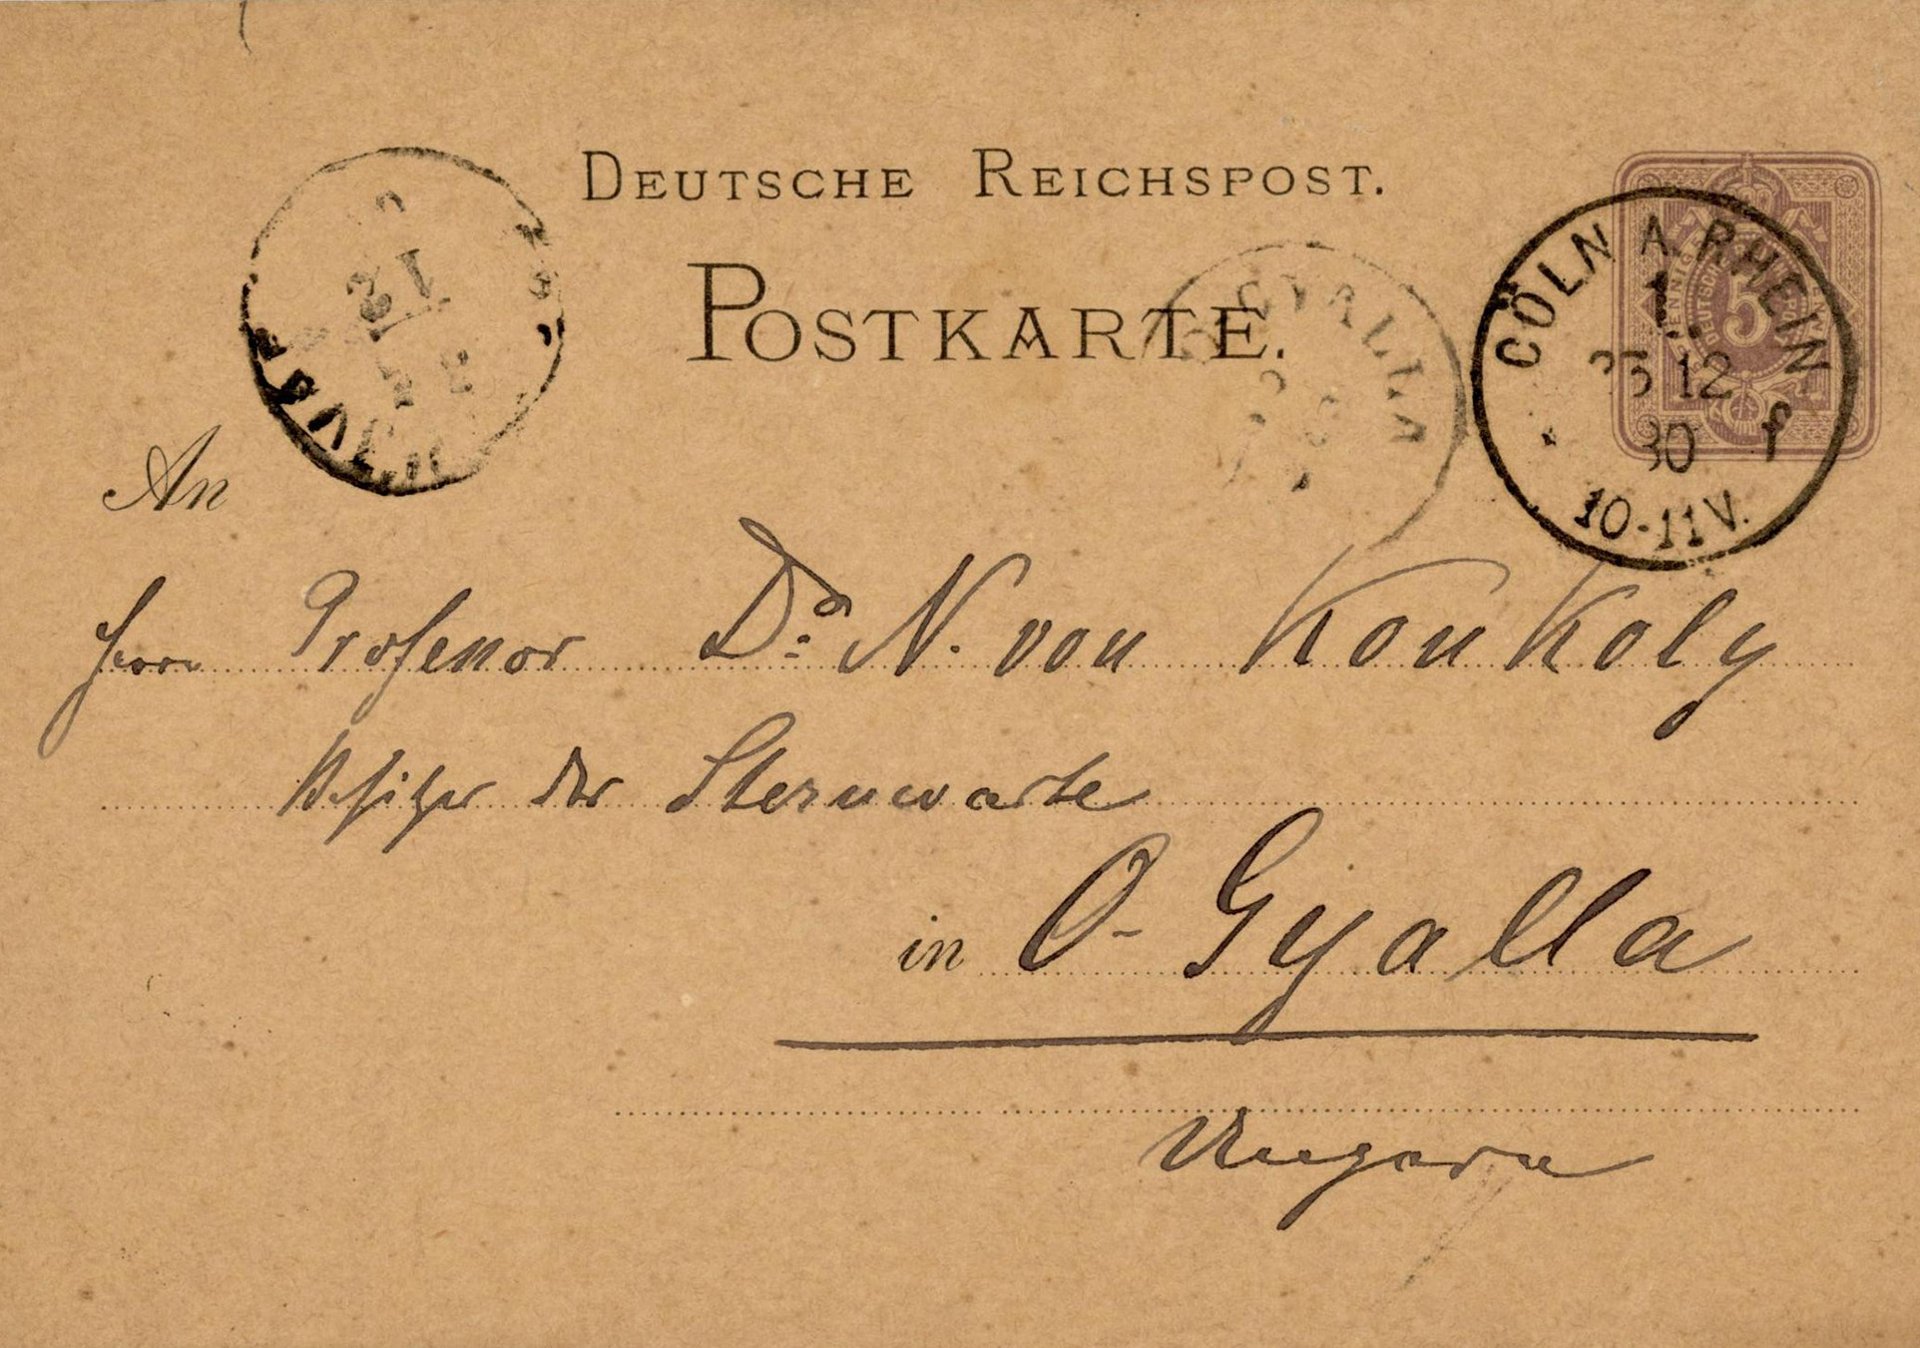 DEUTSCHE REICHSPOST.
POSTKARTE.
CÖLN A. RHEIN
1.
12
80 f
10-11 V.
5
GYALLA
An
Herrn Professor Dr. N. von Konkoly
Besitzer der Sternwarte
in O-Gyalla
Ungarn